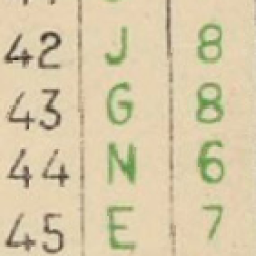 42 J 8
43 G 8
44 N 6
45 E 7